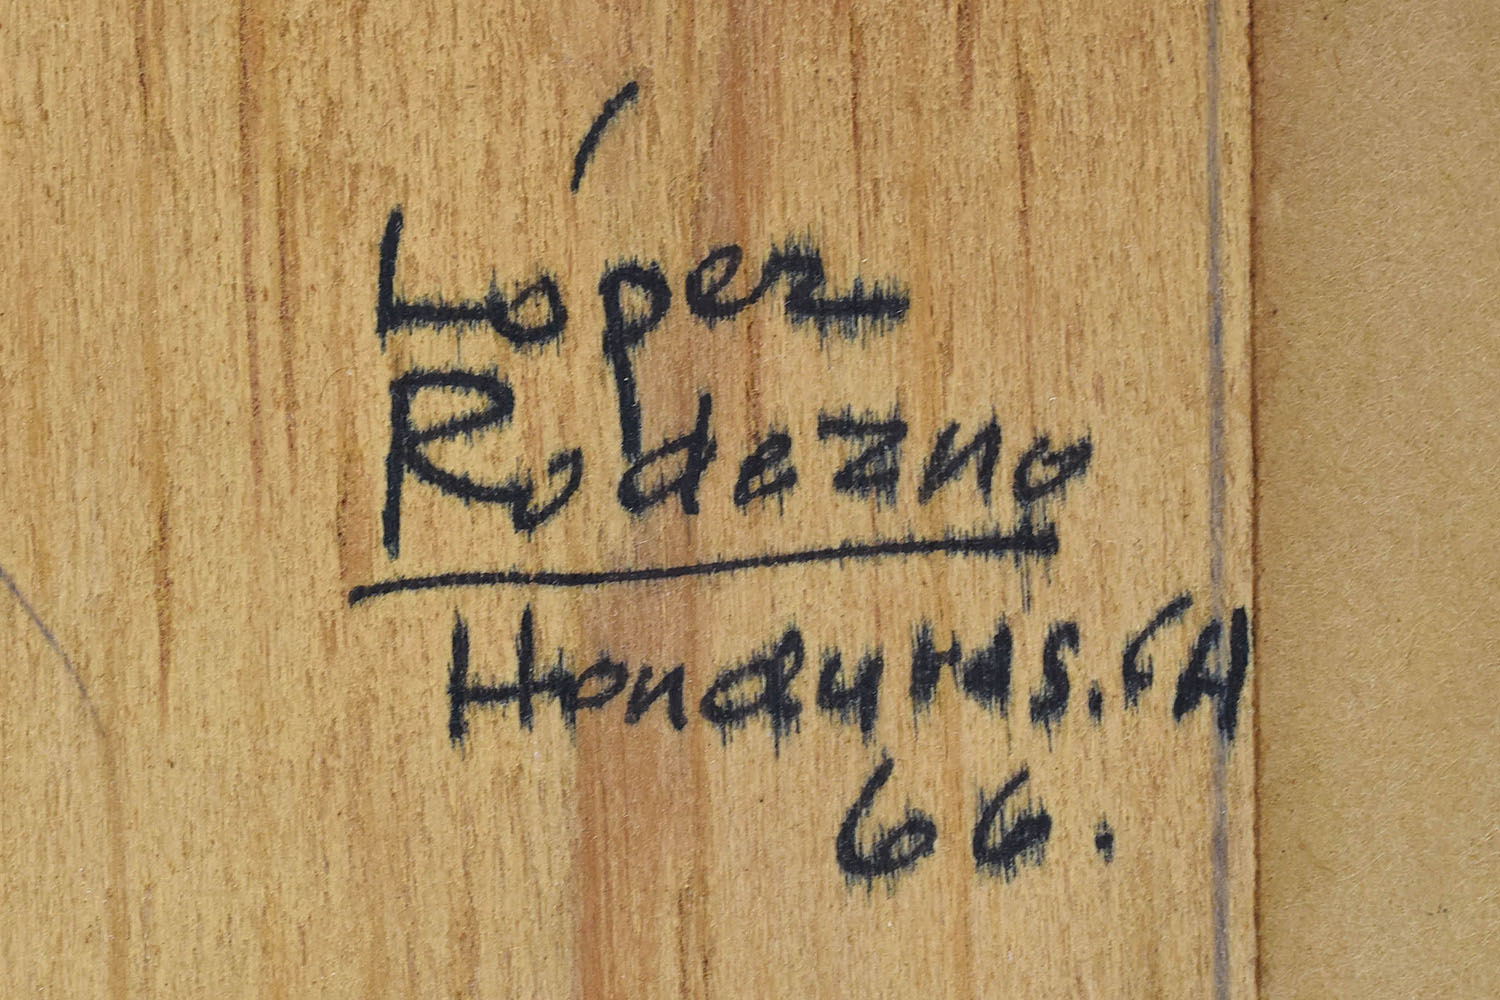 López
Rodezno
Honduras. CA
66.